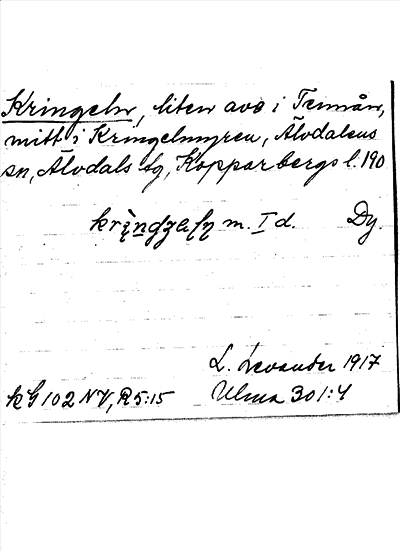 Kringeln, liten avo i Tennån,
mitt i Kringelmyren, Älvdalens
sn, Älvdals tg, Kopparbergs l. 190
m. I d. Dy.
L. Levander 1917
KG 102 NV, R5:15 Ulma 301:4